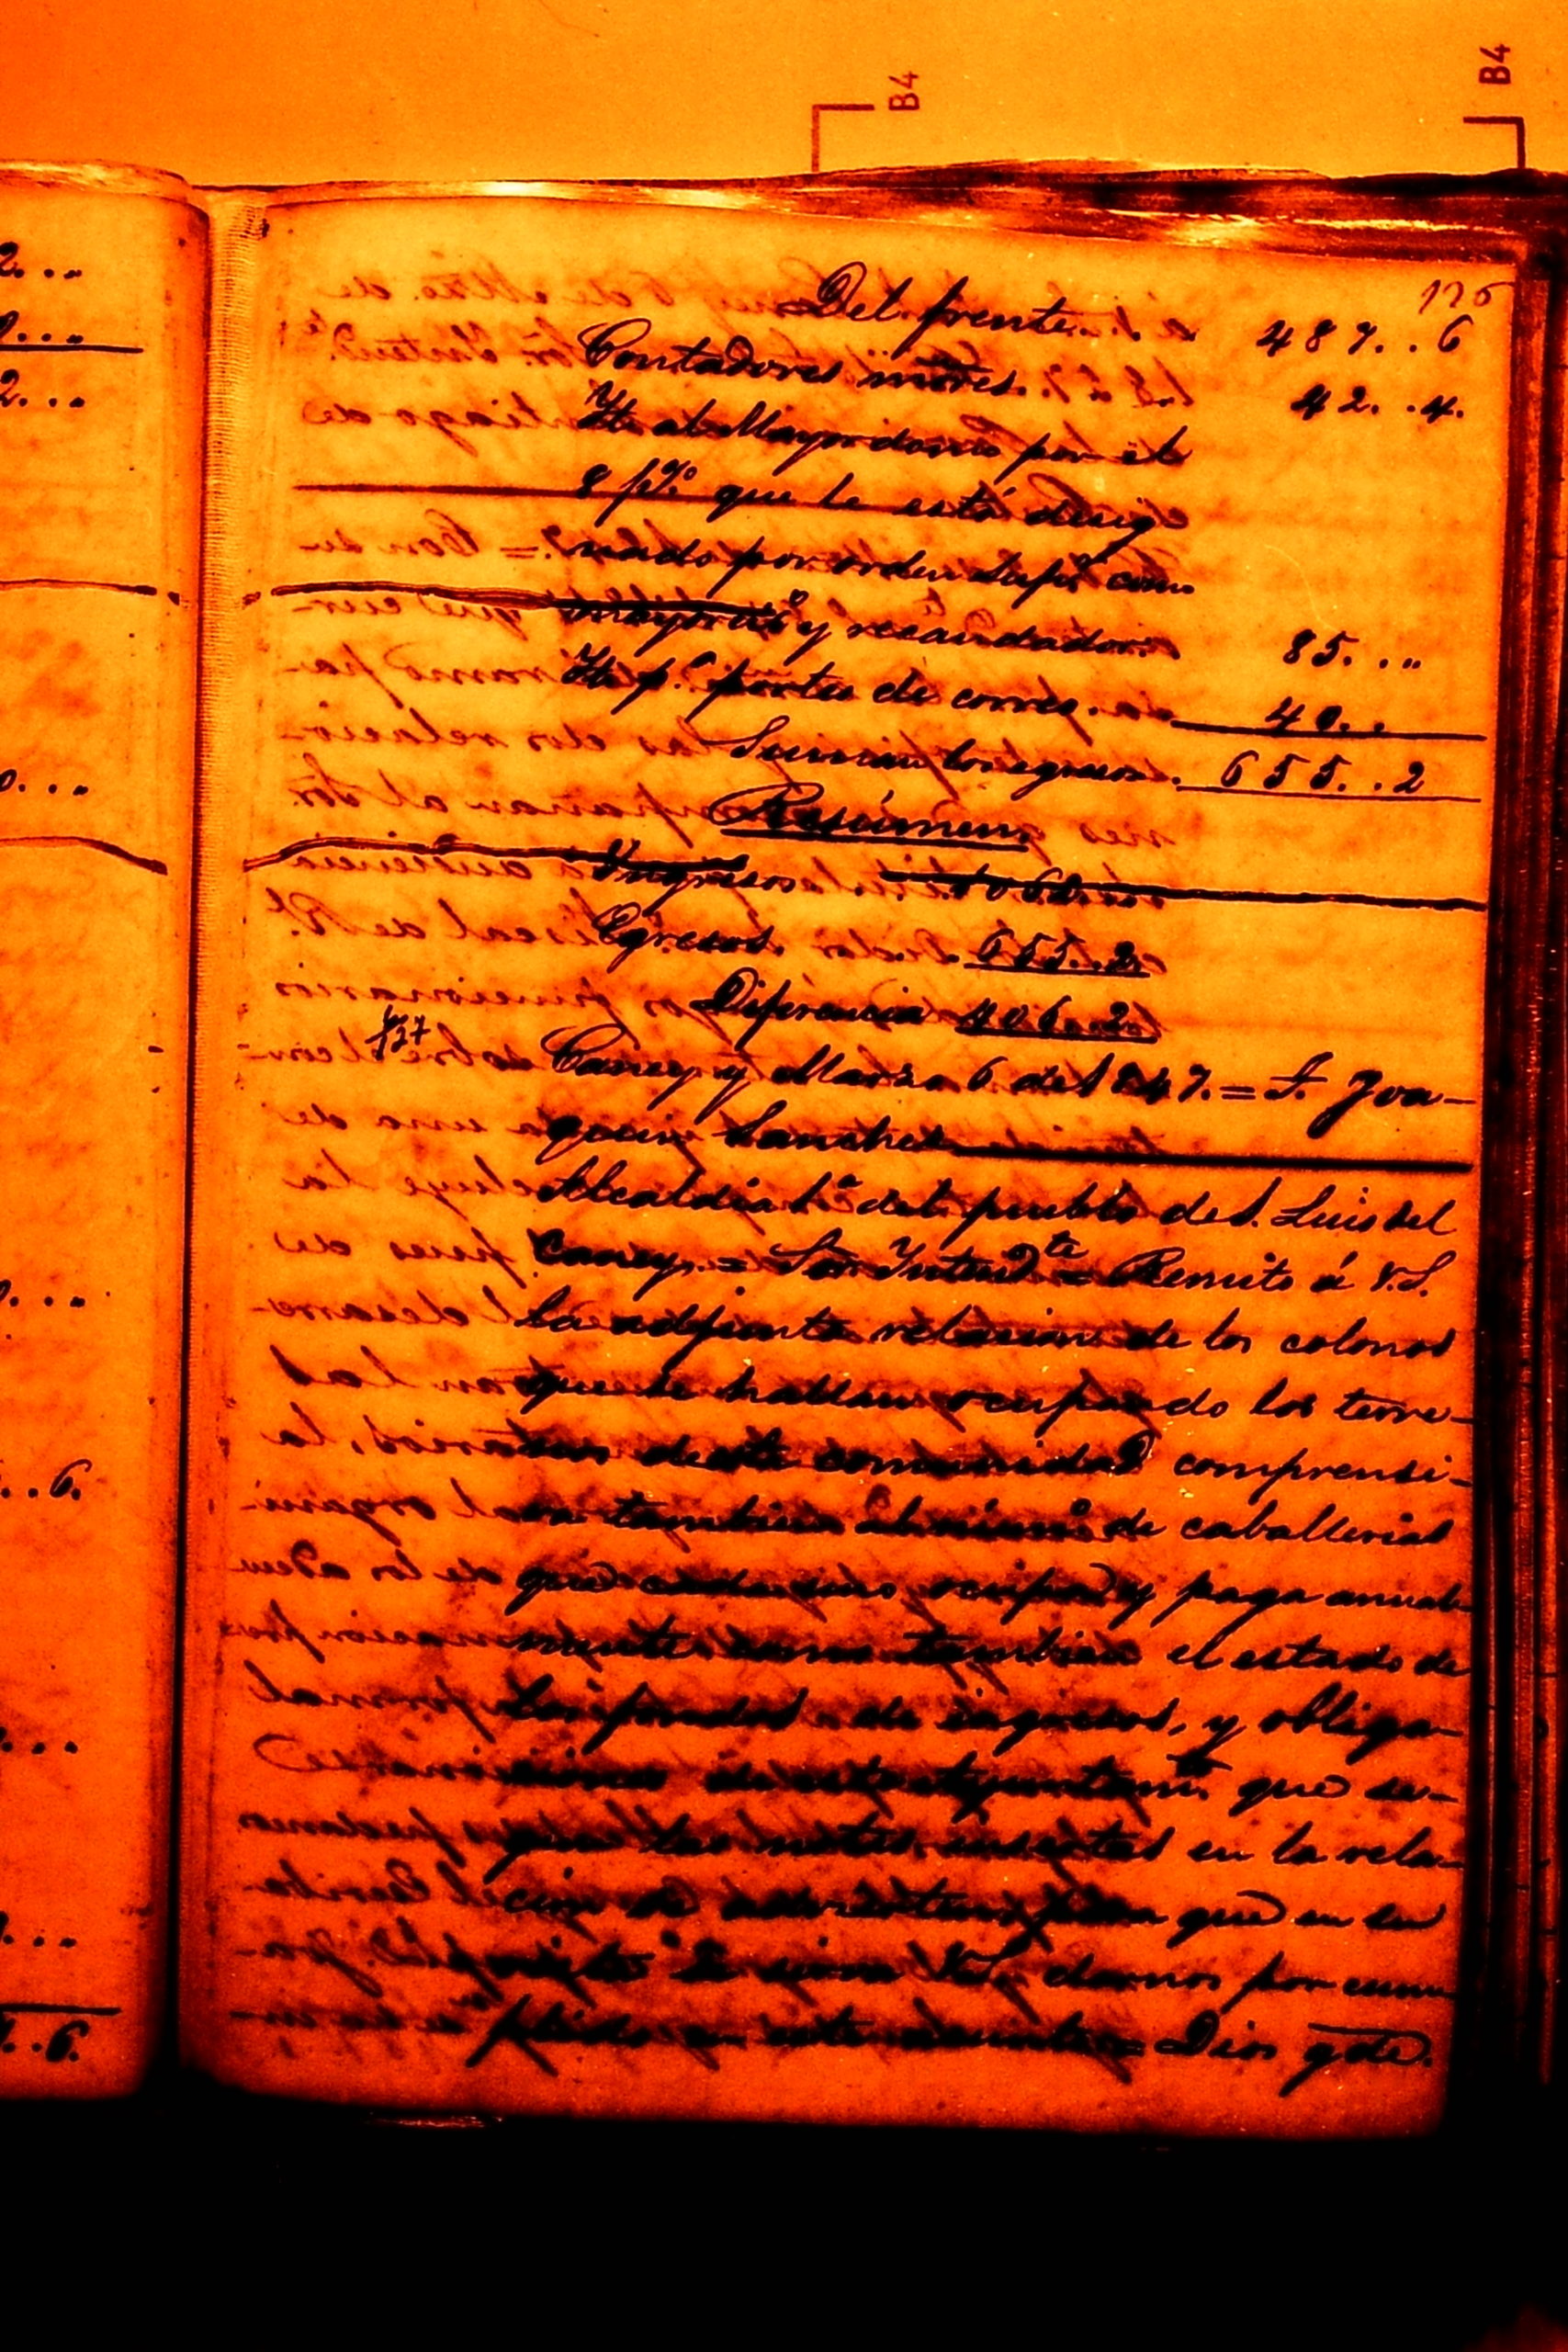 B4 B4
2...
0...
2...
0...
0...
..6.
...
...
..6.
126
Del frente 487..6
Contadores mores. 42..4.
Yt. al Mayordomo por el
8 p% que le está desig
nado por orden Supr. como
mayormo y recaudador. 85..."
Yt. pr. portes de correo. 40..
Suman los egresos. 655..2
Resúmen
Ingresos
Egresos 655..2
Diferencia 406..2
f 127
Caney y Marzo 6 de 1847.= F. Joa-
quin Sanchez
Alcaldia 1a. del pueblo de S. Luis del
Caney.= Sor. Yntendte.= Remito á V.S.
la adjunta relacion de los colonos
que se hallan ocupando los terre-
nos de esta comunidad comprensi-
va tambien al número de caballerias
que cada uno ocupa y paga anual-
mente como tambien el estado de
los fondos de ingresos, y obliga-
ciones de este Ayuntamto. que se-
gun las notas insertas en la rela-
cion se que en su
vista se sirva V.S. darnos por cum-
plido en este asunto= Dios gde.